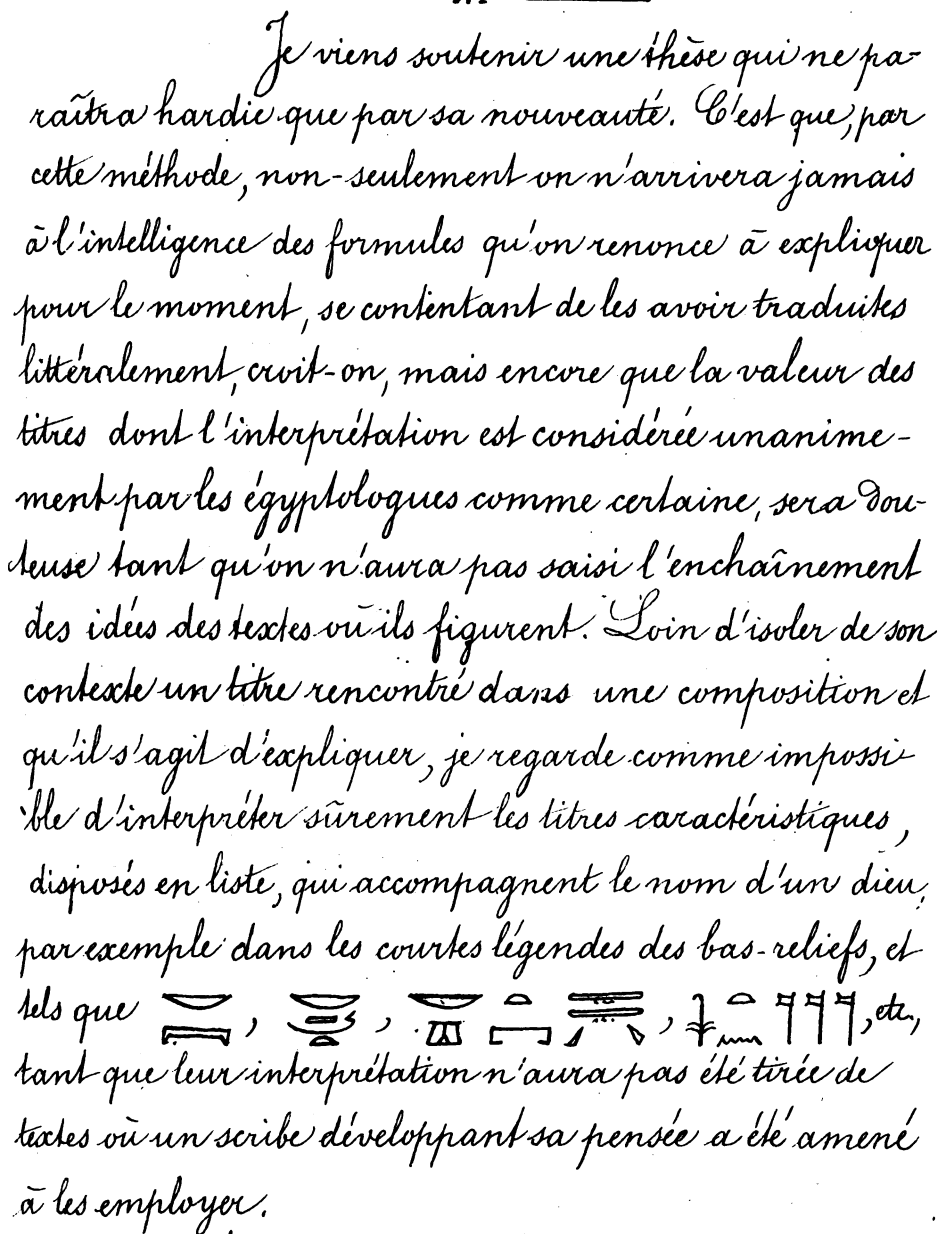 Je viens soutenir une thèse qui ne pa-
raîtra hardie que par sa nouveauté. C'est que, par
cette méthode, non-seulement on n'arrivera jamais
à l'intelligence des formules qu'on renonce à expliquer
pour le moment, se contentant de les avoir traduites
littéralement, croit-on, mais encore que la valeur des
titres dont l'interprétation est considérée unanime-
ment par les égyptologues comme certaine, sera dou-
teuse tant qu'on n'aura pas saisi l'enchaînement
des idées des textes où ils figurent. Loin d'isoler de son
contexte un titre rencontré dans une composition et
qu'il s'agit d'expliquer, je regarde comme impossi-
ble d'interpréter sûrement les titres caractéristiques,
disposés en liste, qui accompagnent le nom d'un dieu,
par exemple dans les courtes légendes des bas-reliefs, et
tels que , , , etc.,
tant que leur interprétation n'aura pas été tirée de
textes où un scribe développant sa pensée a été amené
à les employer.